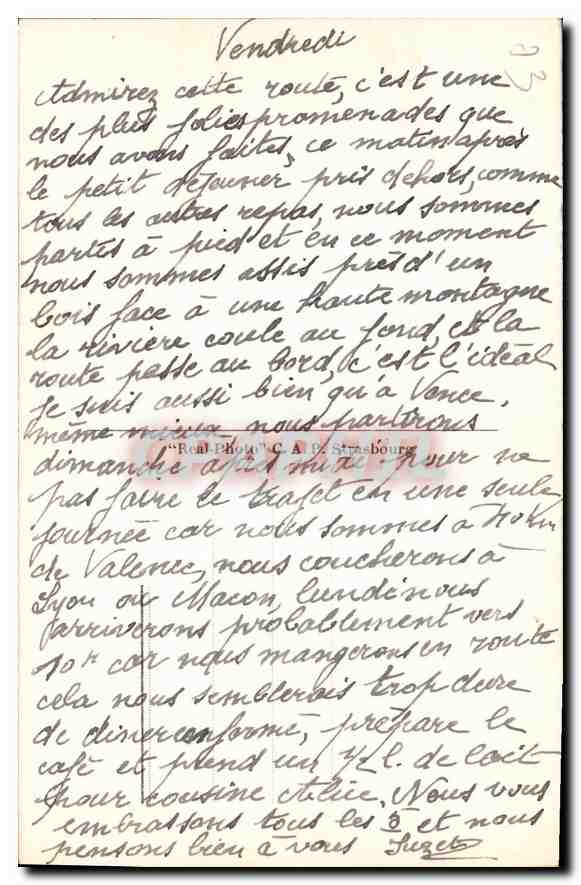 Vendredi
93
Admirez cette route, c'est une
des plus jolies promenades que
nous avons faites, ce matin après
le petit déjeuner pris dehors, comme
tous les autres repas, nous sommes
partis à pied et en ce moment
nous sommes assis près d'un
bois face à une haute montagne
la rivière coule au fond, et la
route passe au bord, c'est l'idéal
Je suis aussi bien qu'à Vence,
même mieux nous partirons
"Real-Photo" C. A. P. Strasbourg
dimanche après midi pour ne
pas faire le trajet en une seule
journée car nous sommes à km
de Valence, nous coucherons à
Lyon ou Macon, lundi nous
arriverons probablement vers
10h car nous mangerons en route
cela nous semblerais trop dure
de diner enfermé, prépare le
café et prend un 1/2 l. de lait
pour cousine Alice. Nous vous
embrassons tous les 5 et nous
pensons bien à vous Suzette